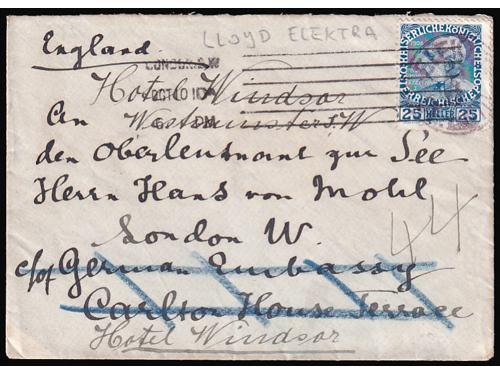 England.
LLOYD ELEKTRA
LONDON. S.W
OCT 10
Hotel Windsor
Westminster S.W
An
den Oberleutnant zur See
Herrn Hans von Mohl
London W.
c/of German Embassy
Carlton House Terrace
Hotel Windsor
44
KAISERLICHE KÖNIGLICHE
25 HELLER 25